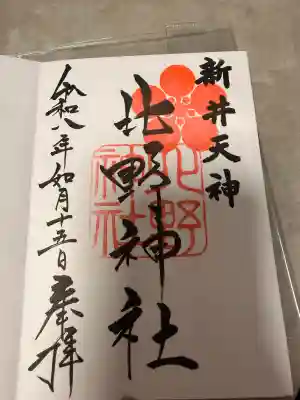 新井天神
北野神社
北野神社
令和八年如月十五日
奉拝